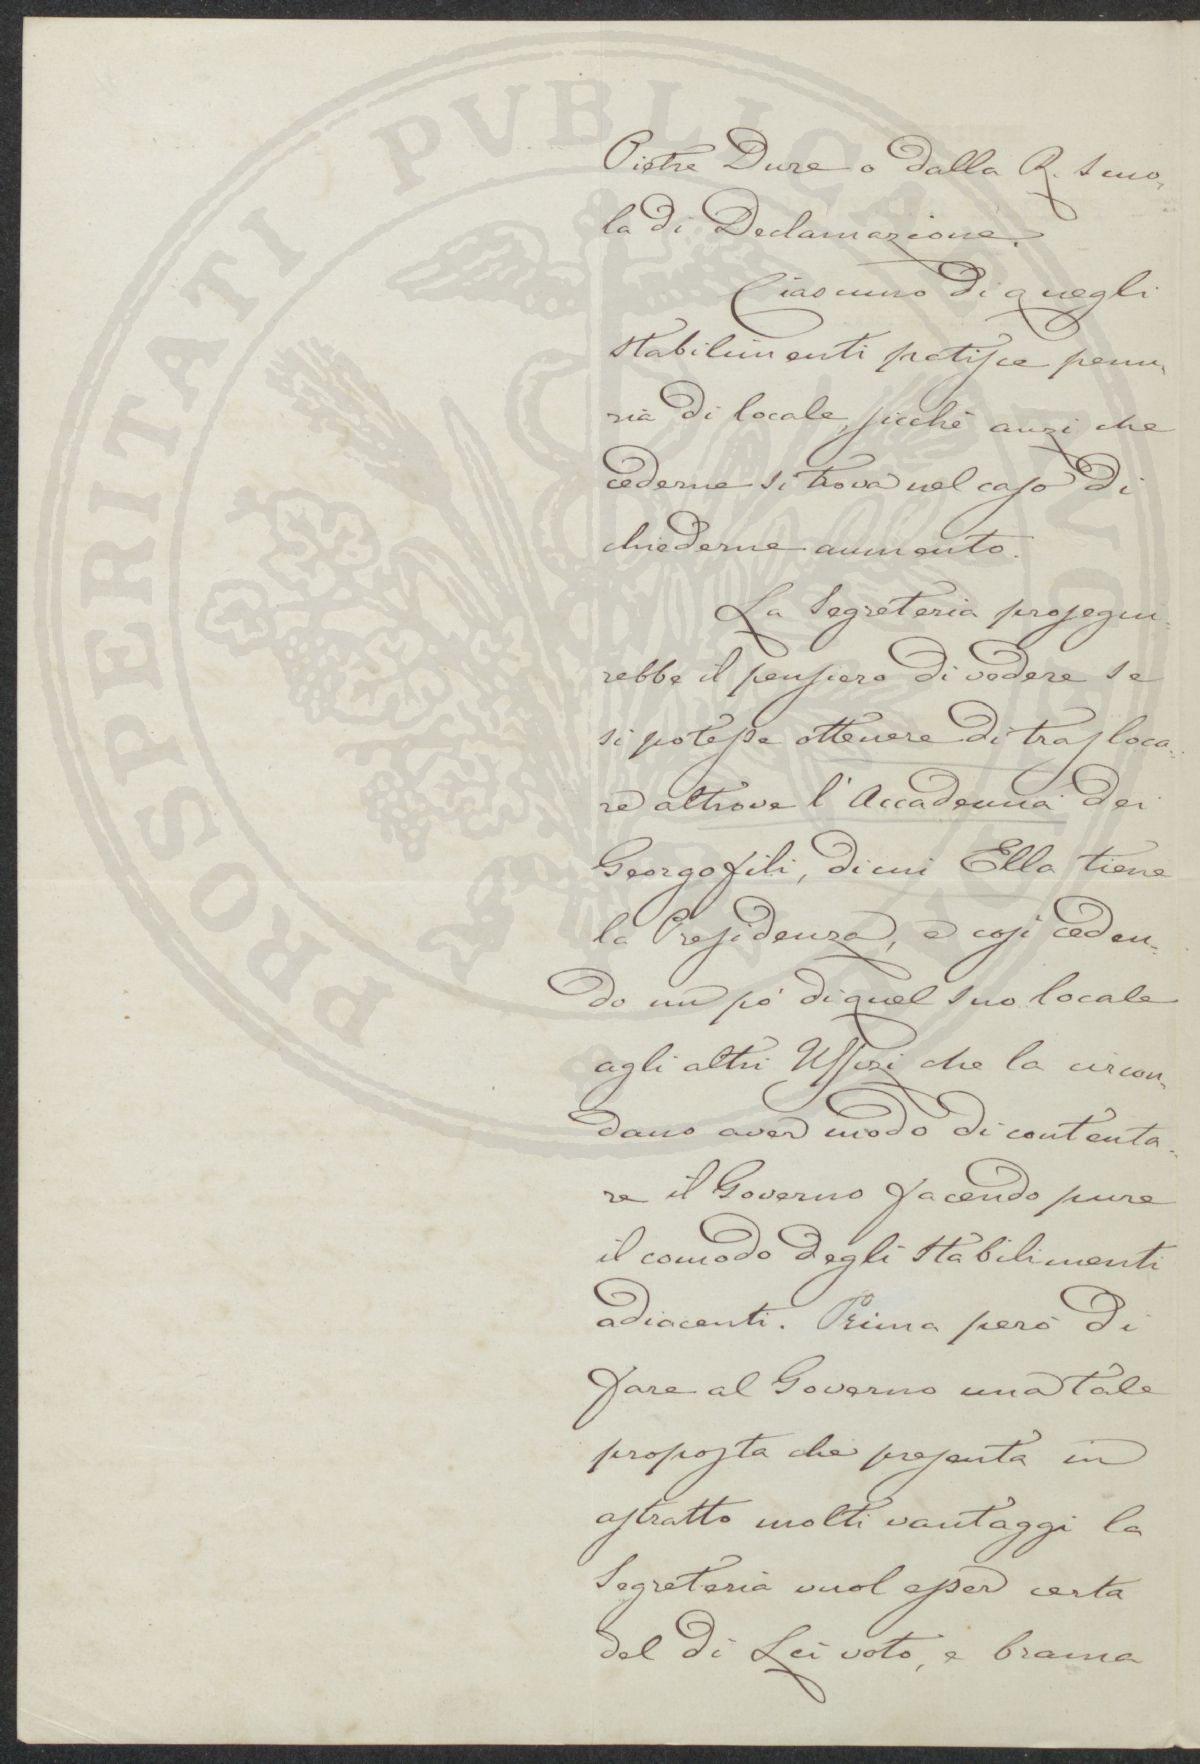 PROSPERITATI PVBLICAE AVGENDAE
Pietre Dure o dalla R. Scuo,
la di Declamazione.
Ciascuno di quegli
stabilimenti patisce penu,
ria di locale, sicchè anzi che
cederne si trova nel caso di
chiederne aumento.
La Segreteria prosegui,
rebbe il pensiero di vedere se
si potesse ottenere di trasloca,
re altrove l'Accademia dei
Georgofili, di cui Ella tiene
la Presidenza, e così ceden,
do un pò di quel suo locale
agli altri Uffizi che la circon,
dano aver modo di contenta,
re il Governo facendo pure
il comodo degli stabilimenti
adiacenti. Prima però di
fare al Governo una tale
proposta che presenta in
astratto molti vantaggi la
Segreteria vuol esser certa
del di Lei voto, e brama